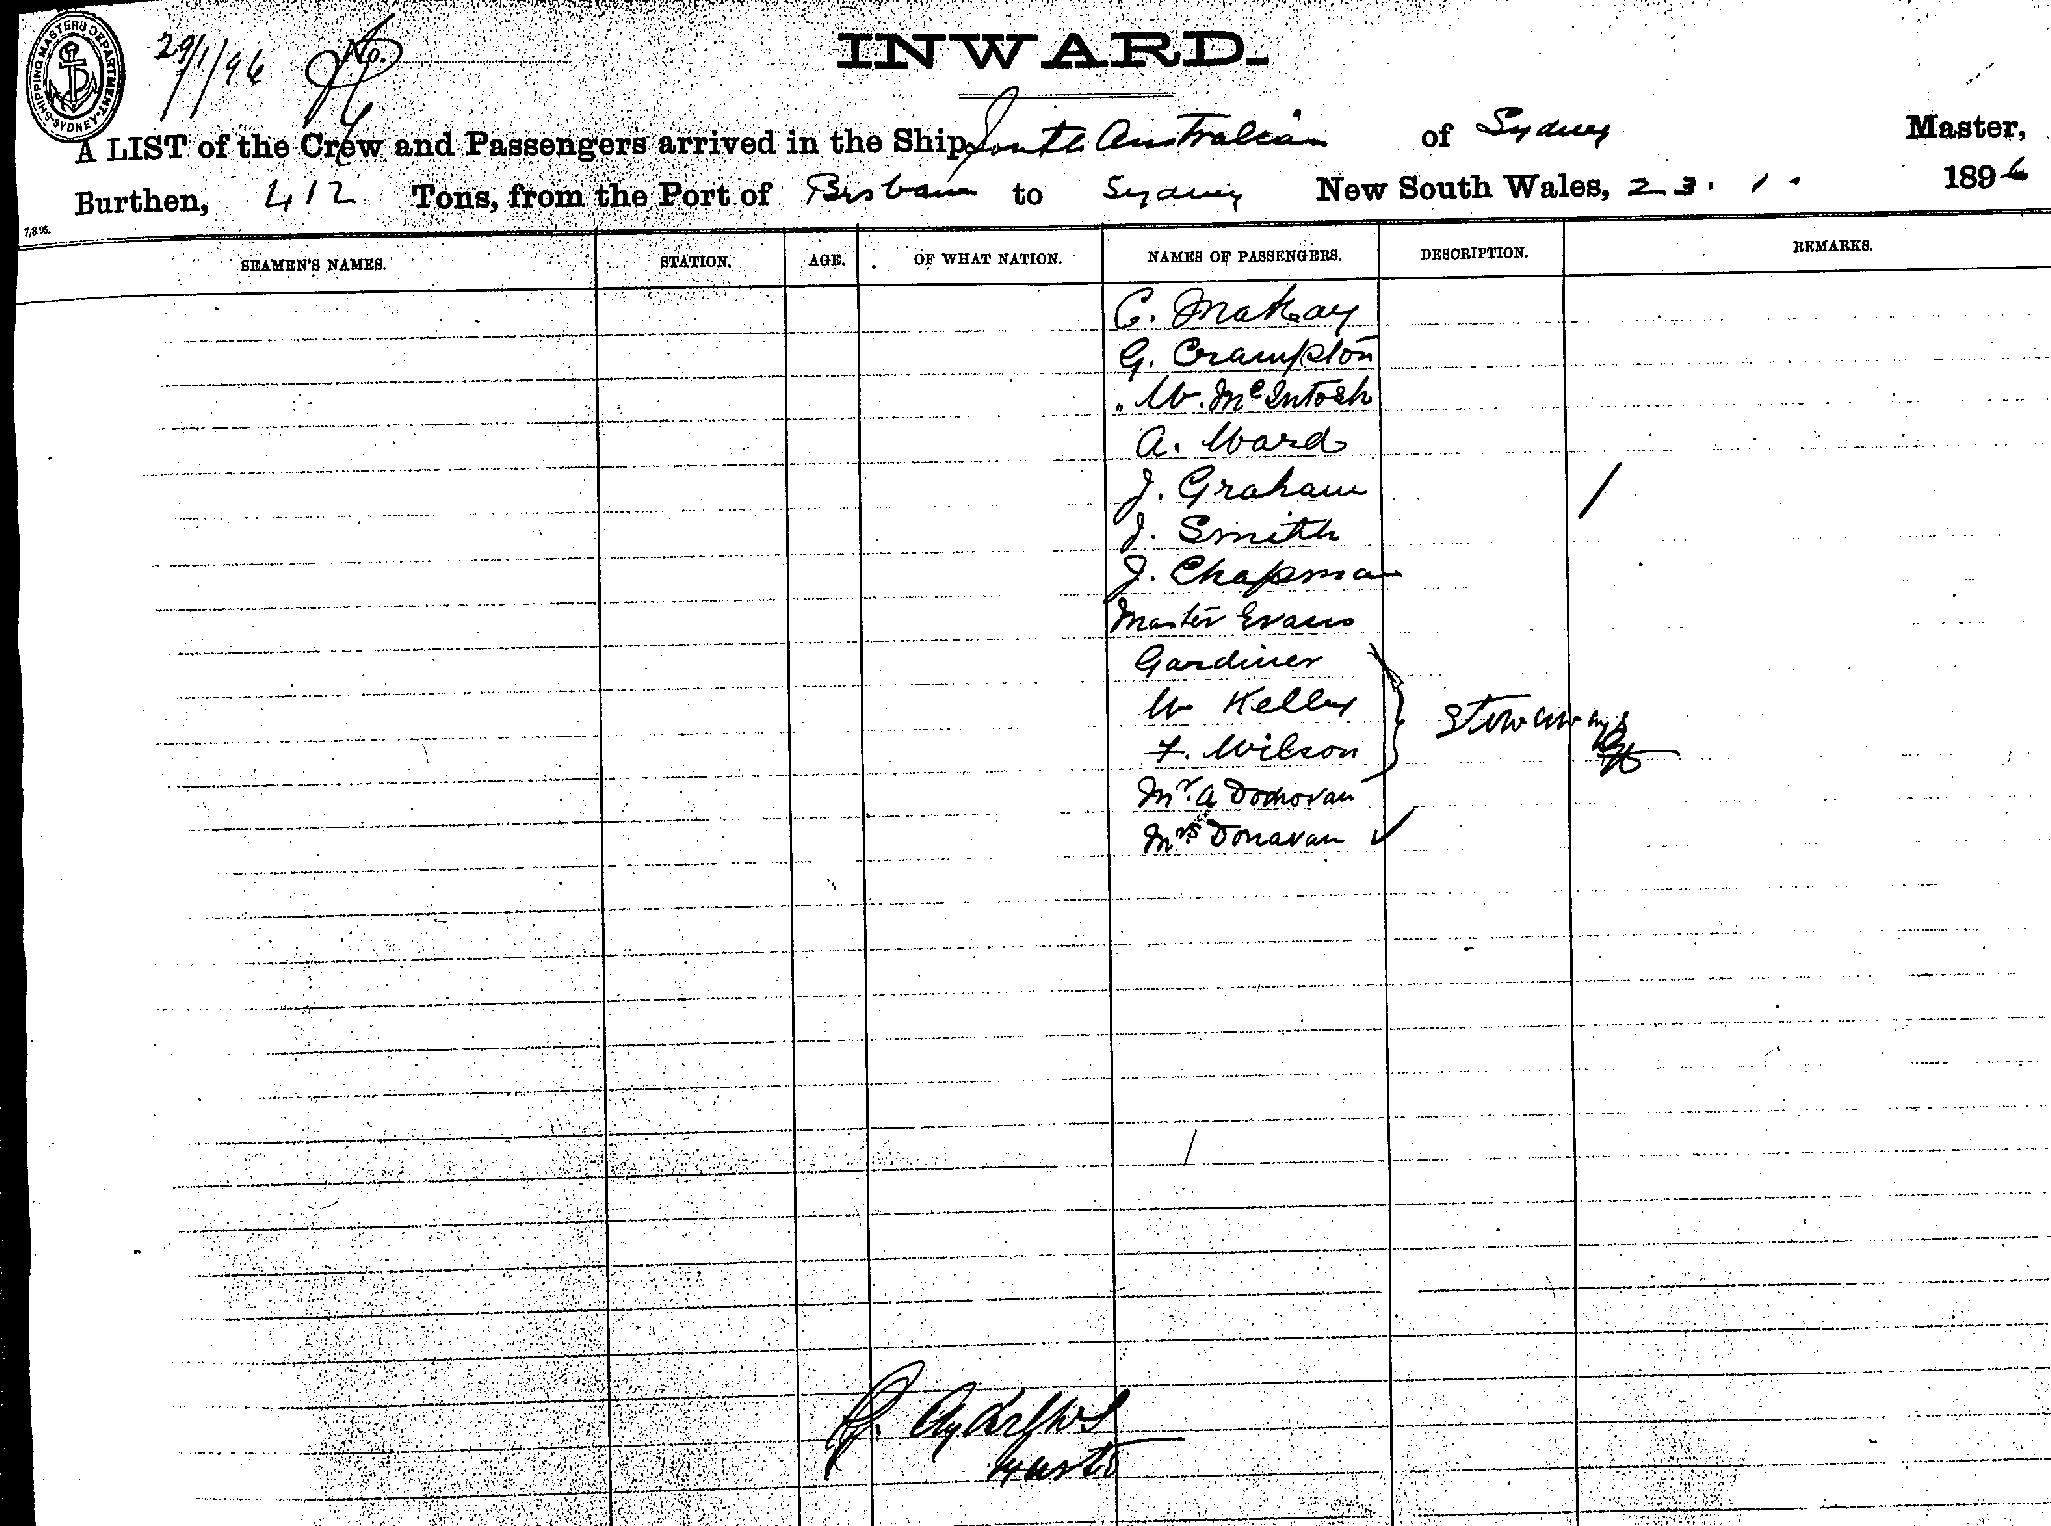 SHIPPING MASTER'S DEPARTMENT SYDNEY
29/1/96
INWARD.
A LIST of the Crew and Passengers arrived in the Ship South Australian of Sydney Master,
Burthen, 412 Tons, from the Port of Brisbane to Sydney New South Wales, 23. 1. 1896
7,3 95.
SEAMEN'S NAMES. STATION. AGE. OF WHAT NATION. NAMES OF PASSENGERS. DESCRIPTION. REMARKS.
C. MaKay
G. Crampton
W. McIntosh
A. Ward
J. Graham
J. Smith
J. Chapman
Master Evans
Gardiner
W Kelly
F. Wilson
Stowaways
Mr. A Donovan
Mrs Donavan ✓
Andrews
Master